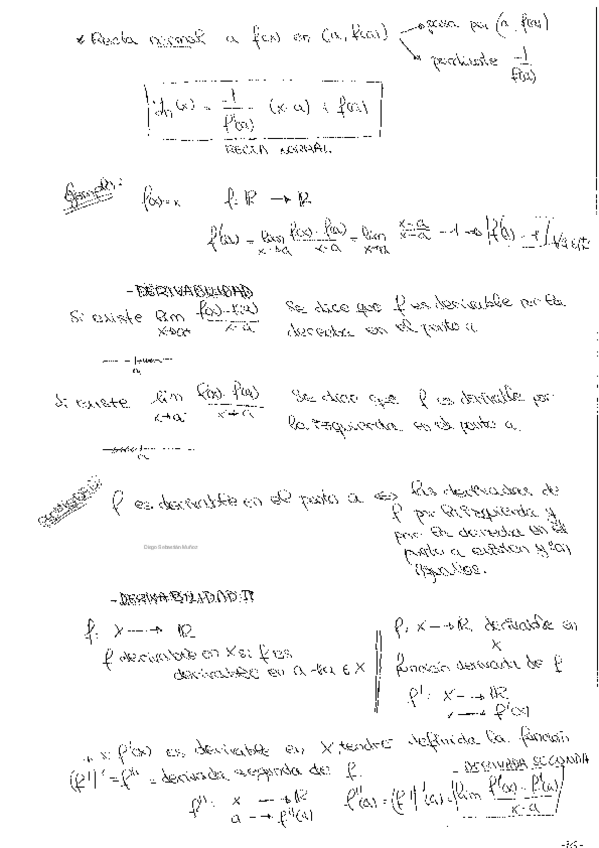 * Recta normal a f(x) en (a, f(a)) → pasa por (a, f(a))
→ pendiente -1/f'(a)
yn(x) = -1/f'(a) (x-a) + f(a)
RECTA NORMAL
Ejemplo:
f(x)=x f: ℝ → ℝ
f'(a) = lim x→a f(x)-f(a)/x-a = lim x→a x-a/x-a = 1 → f'(a) = 1
- DERIVABILIDAD
Si existe lim x→a⁺ f(x)-f(a)/x-a Se dice que f es derivable por la
derecha en el punto a
a
Si existe lim x→a⁻ f(x)-f(a)/x-a Se dice que f es derivable por
la izquierda en el punto a.
a
f es derivable en el punto a ⇔ las derivadas de
f por la izquierda y
por la derecha en el
punto a existen y son
iguales.
Diego Sebastián Muñoz
- DERIVABILIDAD II
f: X → ℝ
f derivable en X si f es
derivable en a ∀a ∈ X
f: X → ℝ derivable en
X
función derivada de f
f': X → ℝ
x → f'(x)
f'(x) es derivable en X, tendré definida la función
(f')' = f'' = derivada segunda de f.
- DERIVADA SEGUNDA
f'': X → ℝ
a → f''(a)
f''(a) = (f')'(a) = lim f'(x)-f'(a)/x-a
-16-